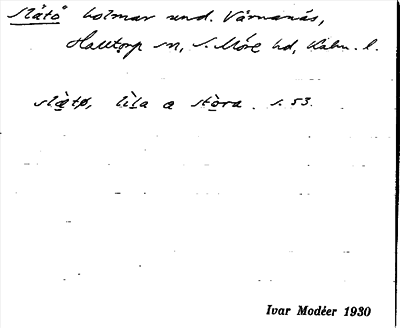 Slätö holmar und. Värnanäs,
Halltorp sn, S. Möre hd, Kalm. l.
slä̀tø, lìla a stòra. s. 53.
Ivar Modéer 1930